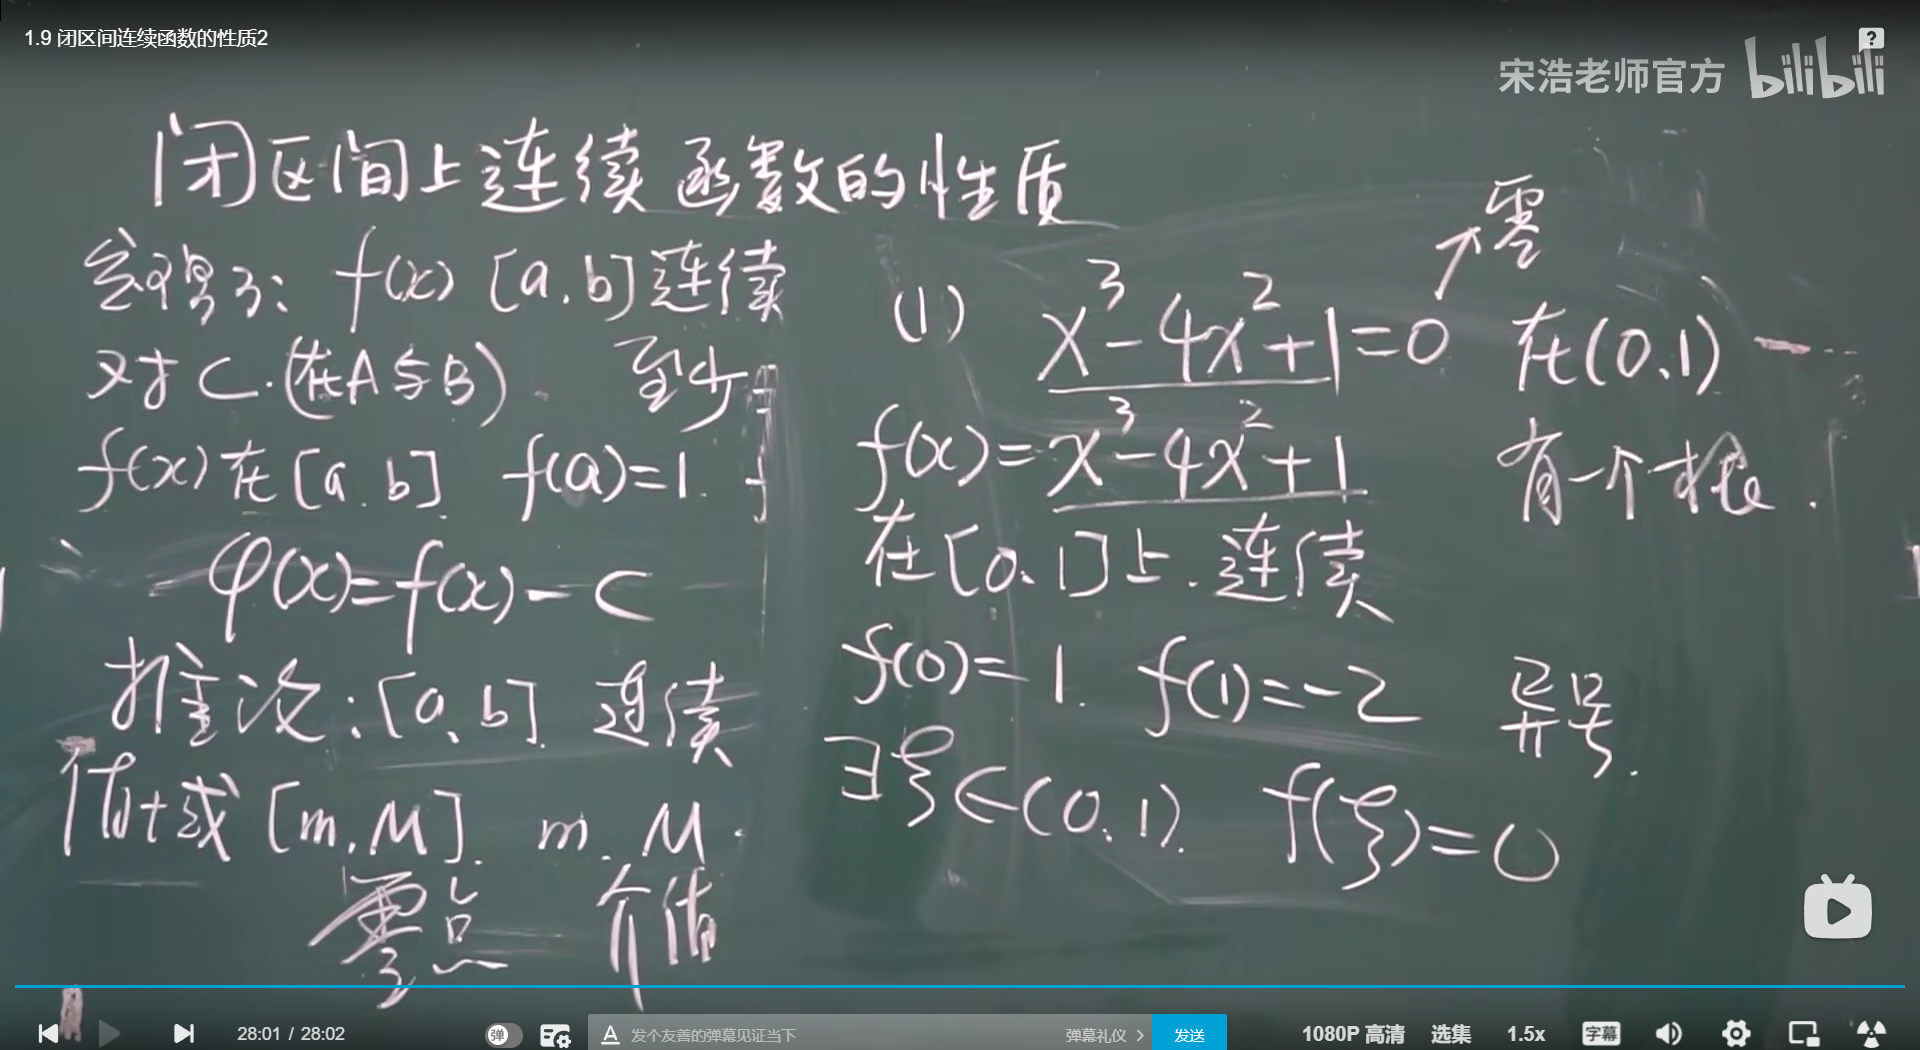 1.9 闭区间连续函数的性质2
宋浩老师官方 bilibili
闭区间上连续函数的性质
f(x) [a,b]连续
对C.(在A与B) 至少
f(x)在[a.b] f(a)=1.
φ(x)=f(x)-C
推论:[a,b] 连续
值域[m,M]. m. M.
零点 介值
零
(1) x³-4x²+1=0 在(0,1)
f(x)=x³-4x²+1 有一个根.
在[0,1]上.连续
f(0)=1. f(1)=-2 异号.
∃ξ∈(0,1). f(ξ)=0
28:01 / 28:02
弹
A 发个友善的弹幕见证当下
弹幕礼仪 >
发送
1080P 高清
选集
1.5x
字幕